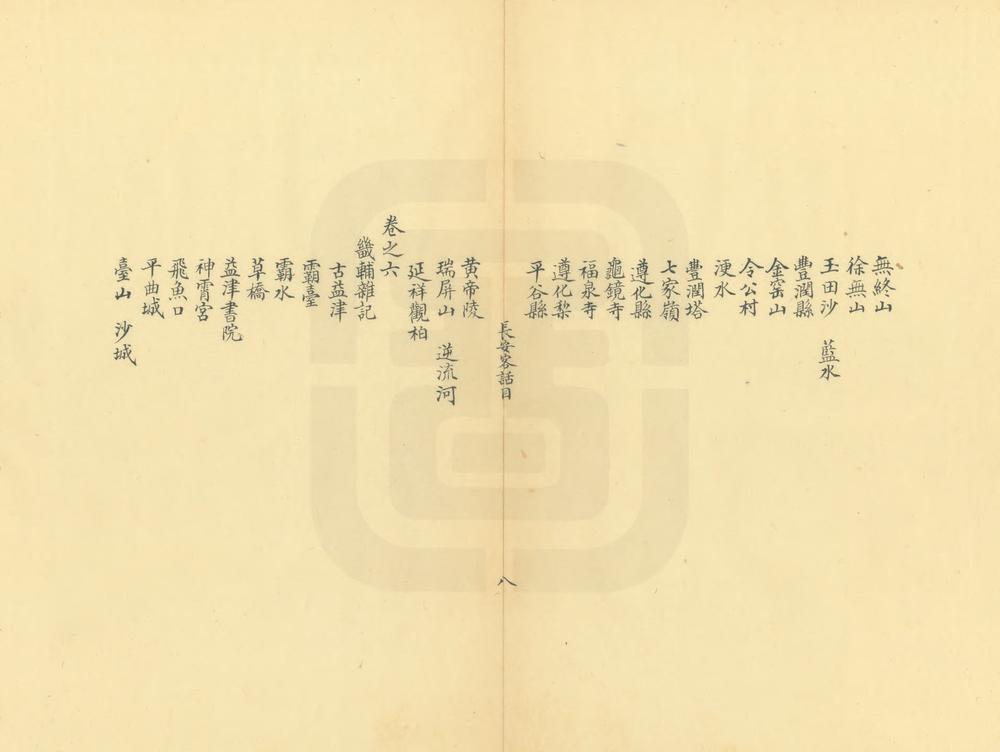 無終山
徐無山
玉田沙　藍水
豐潤縣
金窑山
令公村
浭水
豐潤塔
七家嶺
遵化縣
龜鏡寺
福泉寺
遵化梨
平谷縣
長安客話目
八
黄帝陵
瑞屏山　逆流河
延祥觀柏
卷之六
畿輔雜記
古益津
霸臺
霸水
草橋
益津書院
神霄宮
飛魚口
平曲城
臺山　沙城